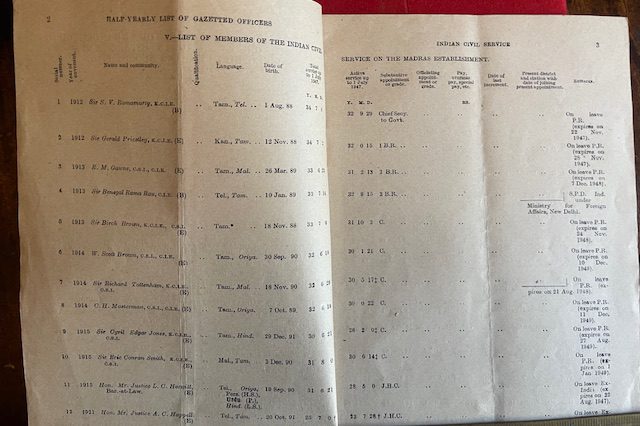 2 HALF-YEARLY LIST OF GAZETTED OFFICERS
V.—LIST OF MEMBERS OF THE INDIAN CIVIL
Serial number.
Year of
Name and community.
Qualification.
Language.
Date of birth.
Total
up to
1 July
1947.
1 1912 Sir S. V. Ramamurty, K.C.I.E. (B) .. Tam., Tel. .. 1 Aug. 88 34
2 1912 Sir Gerald Priestley, K.C.I.E. (E) .. Kan., Tam. .. 12 Nov. 88 34
3 1913 E. M. Gawne, C.S.I., C.I.E. (E) .. Tam., Mal. .. 26 Mar. 89 33
4 1913 Sir Benegal Rama Rau, C.I.E. (B) .. Tel., Tam. .. 10 Jan. 89
5 1913 Sir Birch Brown, K.C.I.E., C.S.I. (E) .. Tam.* .. 18 Nov. 88
6 1914 W. Scott Brown, C.S.I., C.I.E. (E) .. Tam., Oriya. 30 Sep. 90 32 6
7 1914 Sir Richard Tottenham, K.C.I.E., C.S.I. (E) .. Tam., Mal. .. 18 Nov. 90 32 6
8 1914 C. H. Masterman, C.S.I., C.I.E. (E) .. Tam., Oriya. .. 7 Oct. 89 32 6
9 1915 Sir Cyril Edgar Jones, K.C.I.E., C.S.I. (E) .. Tam., Hind. .. 29 Dec. 91
10 1915 Sir Eric Conran Smith, K.C.I.E., C.S.I. (E) .. Mal., Tam. .. 3 Dec. 90 31 8
11 1915 Hon. Mr. Justice L. C. Horwill, Bar.-at-Law. (E) .. Tel., Oriya, Pers. (H.S.), Urdu (P.), Hind. (L.S.). 19 Sep. 90 31 6
12 1921 Hon. Mr. Justice A. C. Happell (E) .. Tel., Tam. .. 20 Oct. 91 25 7
INDIAN CIVIL SERVICE 3
SERVICE ON THE MADRAS ESTABLISHMENT.
Active service up to 1 July 1947.
Substantive appointment or grade.
Officiating appointment or grade.
Pay, overseas pay, special pay, etc.
Date of last increment.
Present district and station with date of joining present appointment.
Remarks.
Y. M. D.
RS.
32 9 29 Chief Secy. to Govt. .. .. .. .. On leave P.R. (expires on 22 Nov. 1947).
32 0 15 1 B.R. .. .. .. .. .. On leave P.R. (expires on 28 Nov. 1947).
31 2 13 2 B.R. .. .. .. .. .. On leave P.R. (expires on 7 Dec. 1948).
32 8 15 3 B.R. .. .. .. .. S.P.D. Ind. under Ministry for Foreign Affairs, New Delhi.
31 10 2 C. .. .. .. .. .. On leave P.R. (expires on 24 Nov. 1948).
30 1 21 C. .. .. .. .. .. On leave P.R. (expires on 10 Dec. 1949).
30 5 17½ C. .. .. .. .. On leave P.R. (expires on 21 Aug. 1948).
30 0 22 C. .. .. .. .. .. On leave P.R. (expires on 11 Dec. 1949).
C. .. .. .. .. .. On leave P.R. (expires on 27 Aug. 1949).
C. .. .. .. .. .. On leave P.R. (expires on 1 Jan 1949).
28 5 0 J.H.C. .. .. .. .. .. On leave Ex-India (ex pires on 22 Aug. 1947).
J.H.C. .. .. .. .. .. On leave Ex-